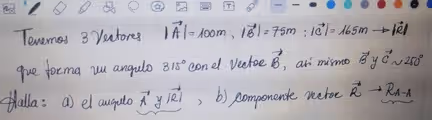 Tenemos 3 Vectores |A⃗|=100m, |B⃗|=75m ; |C⃗|=165m → |R⃗|
que forma un angulo 315° con el Vector B⃗, asi mismo B⃗ y C⃗ ~ 250°
Halla: a) el angulo A⃗ y |R⃗| , b) componente vector R⃗ → R